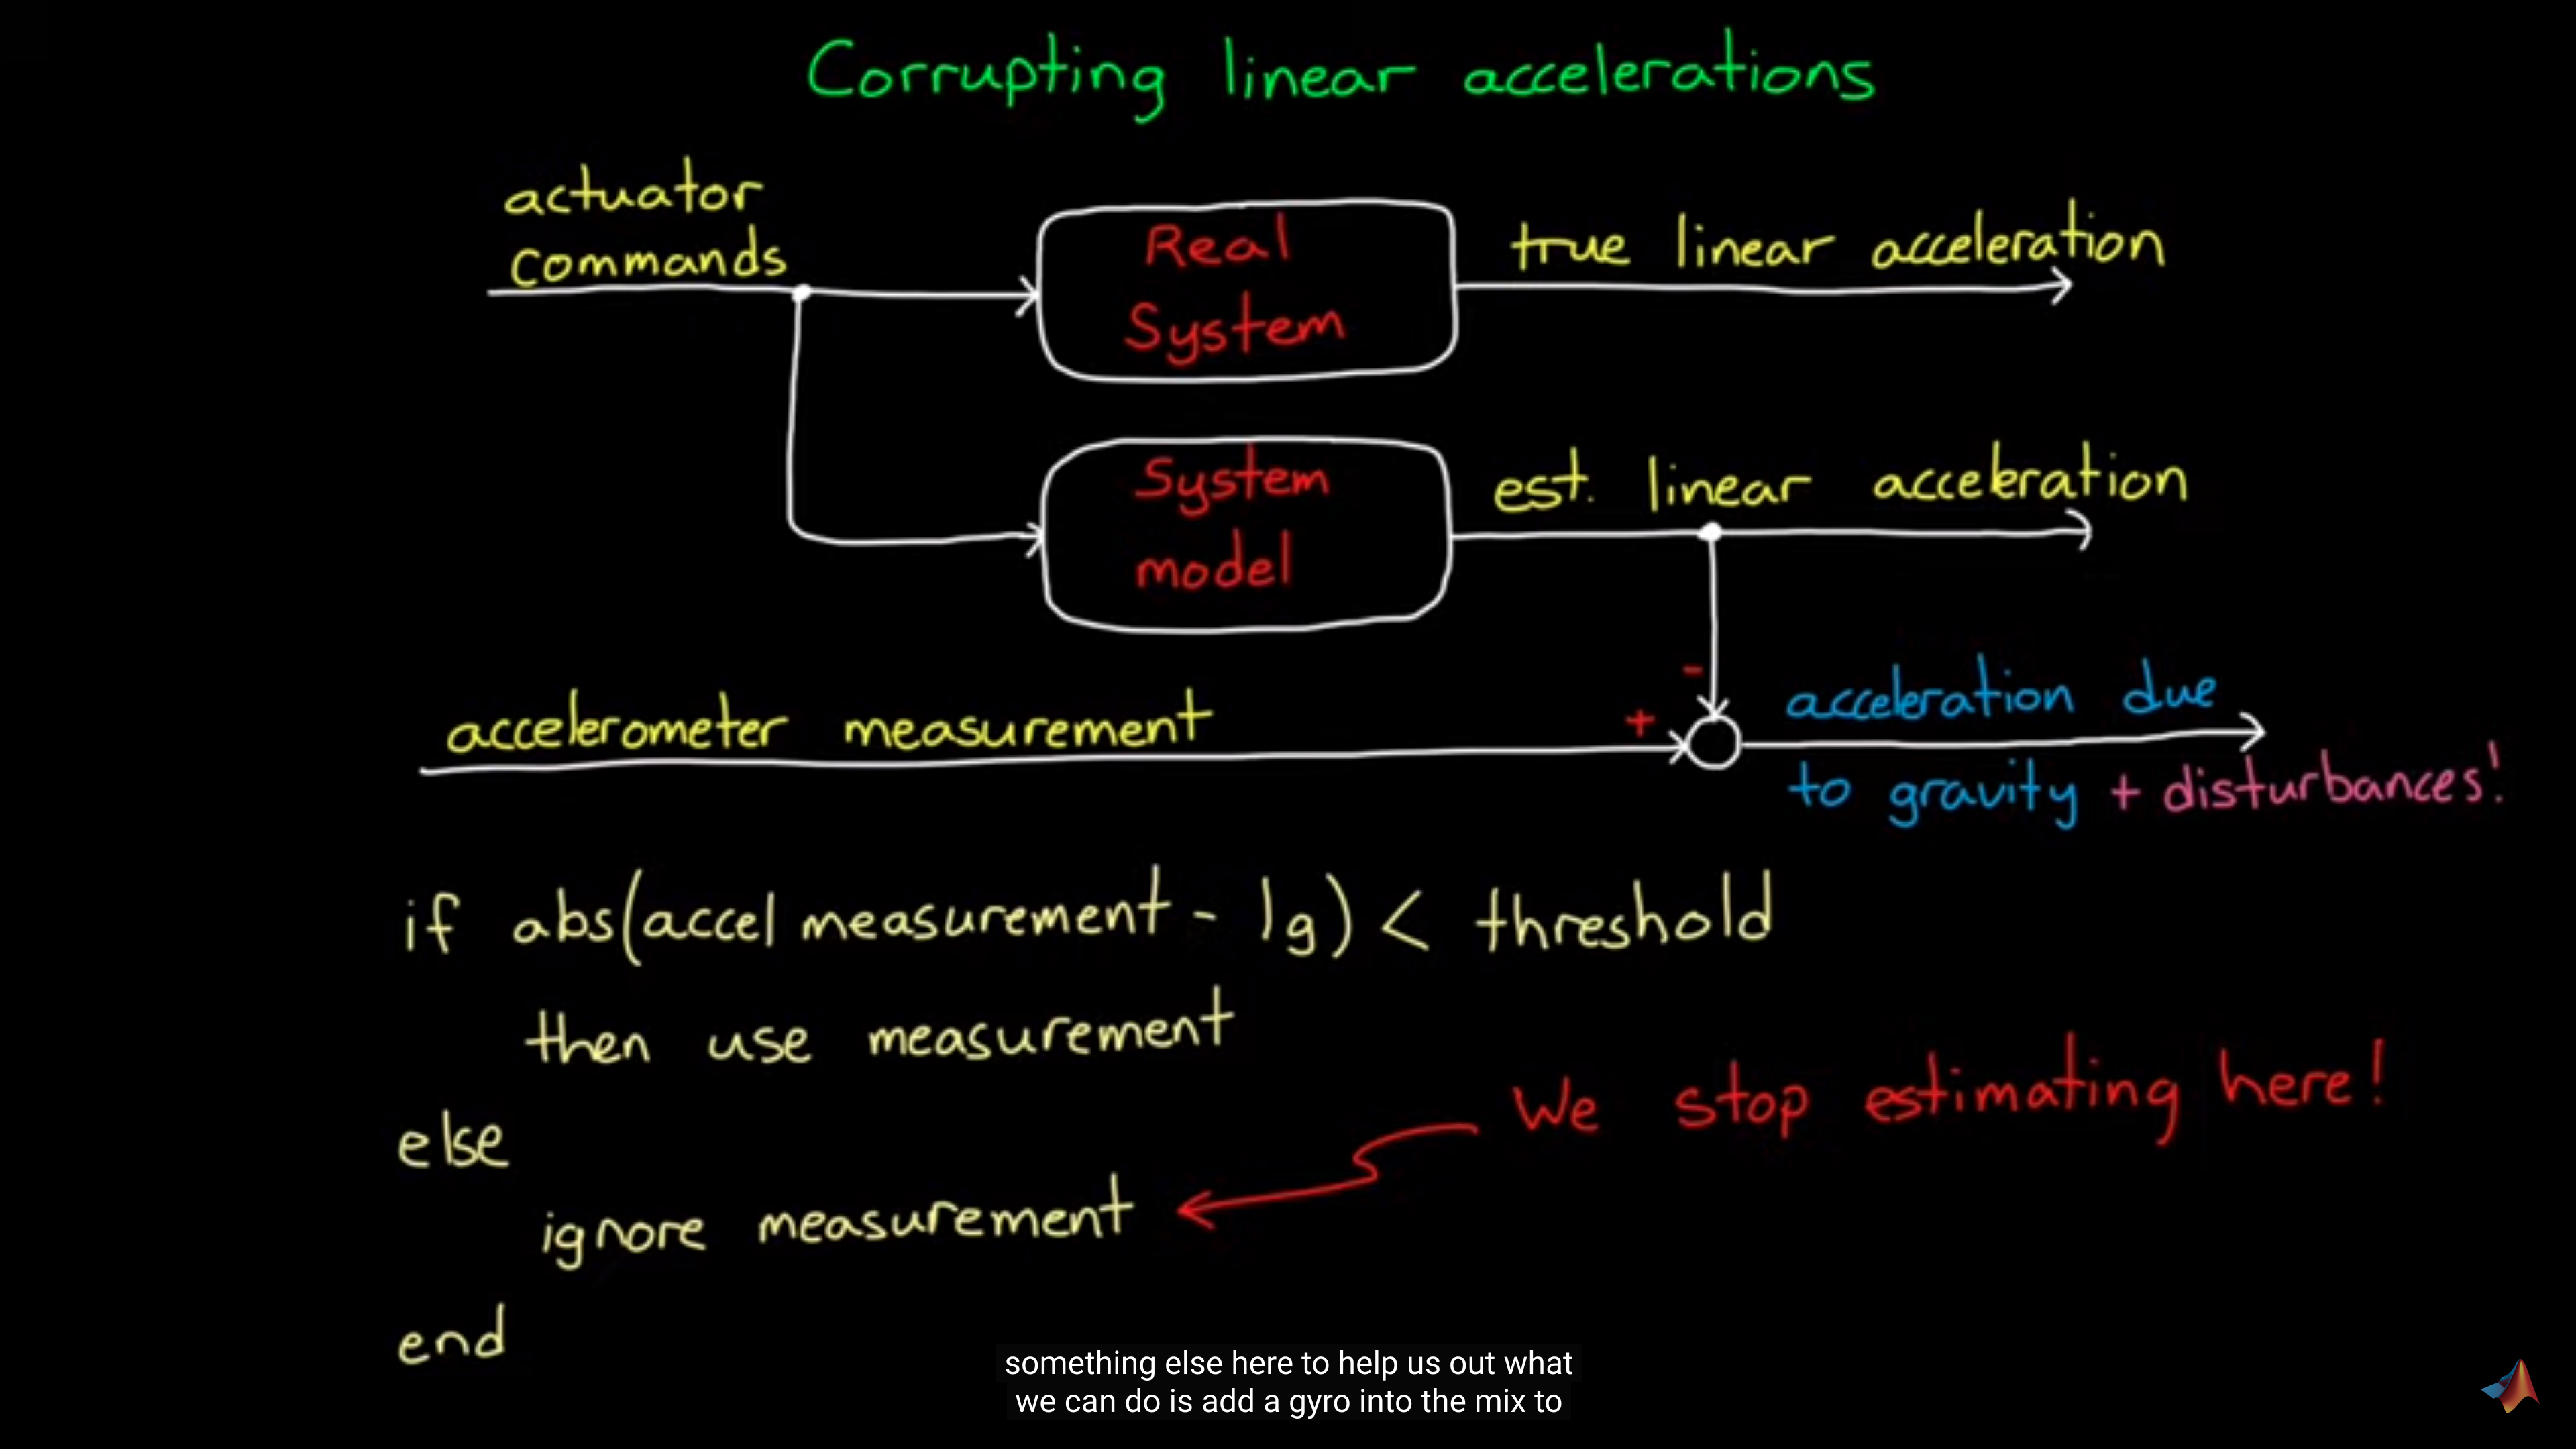 Corrupting linear accelerations
actuator
commands
Real
System
true linear acceleration
System
model
est. linear acceleration
-
+
accelerometer measurement
acceleration due
to gravity + disturbances!
if abs(accel measurement - 1g) < threshold
then use measurement
else
We stop estimating here!
ignore measurement
end
something else here to help us out what
we can do is add a gyro into the mix to